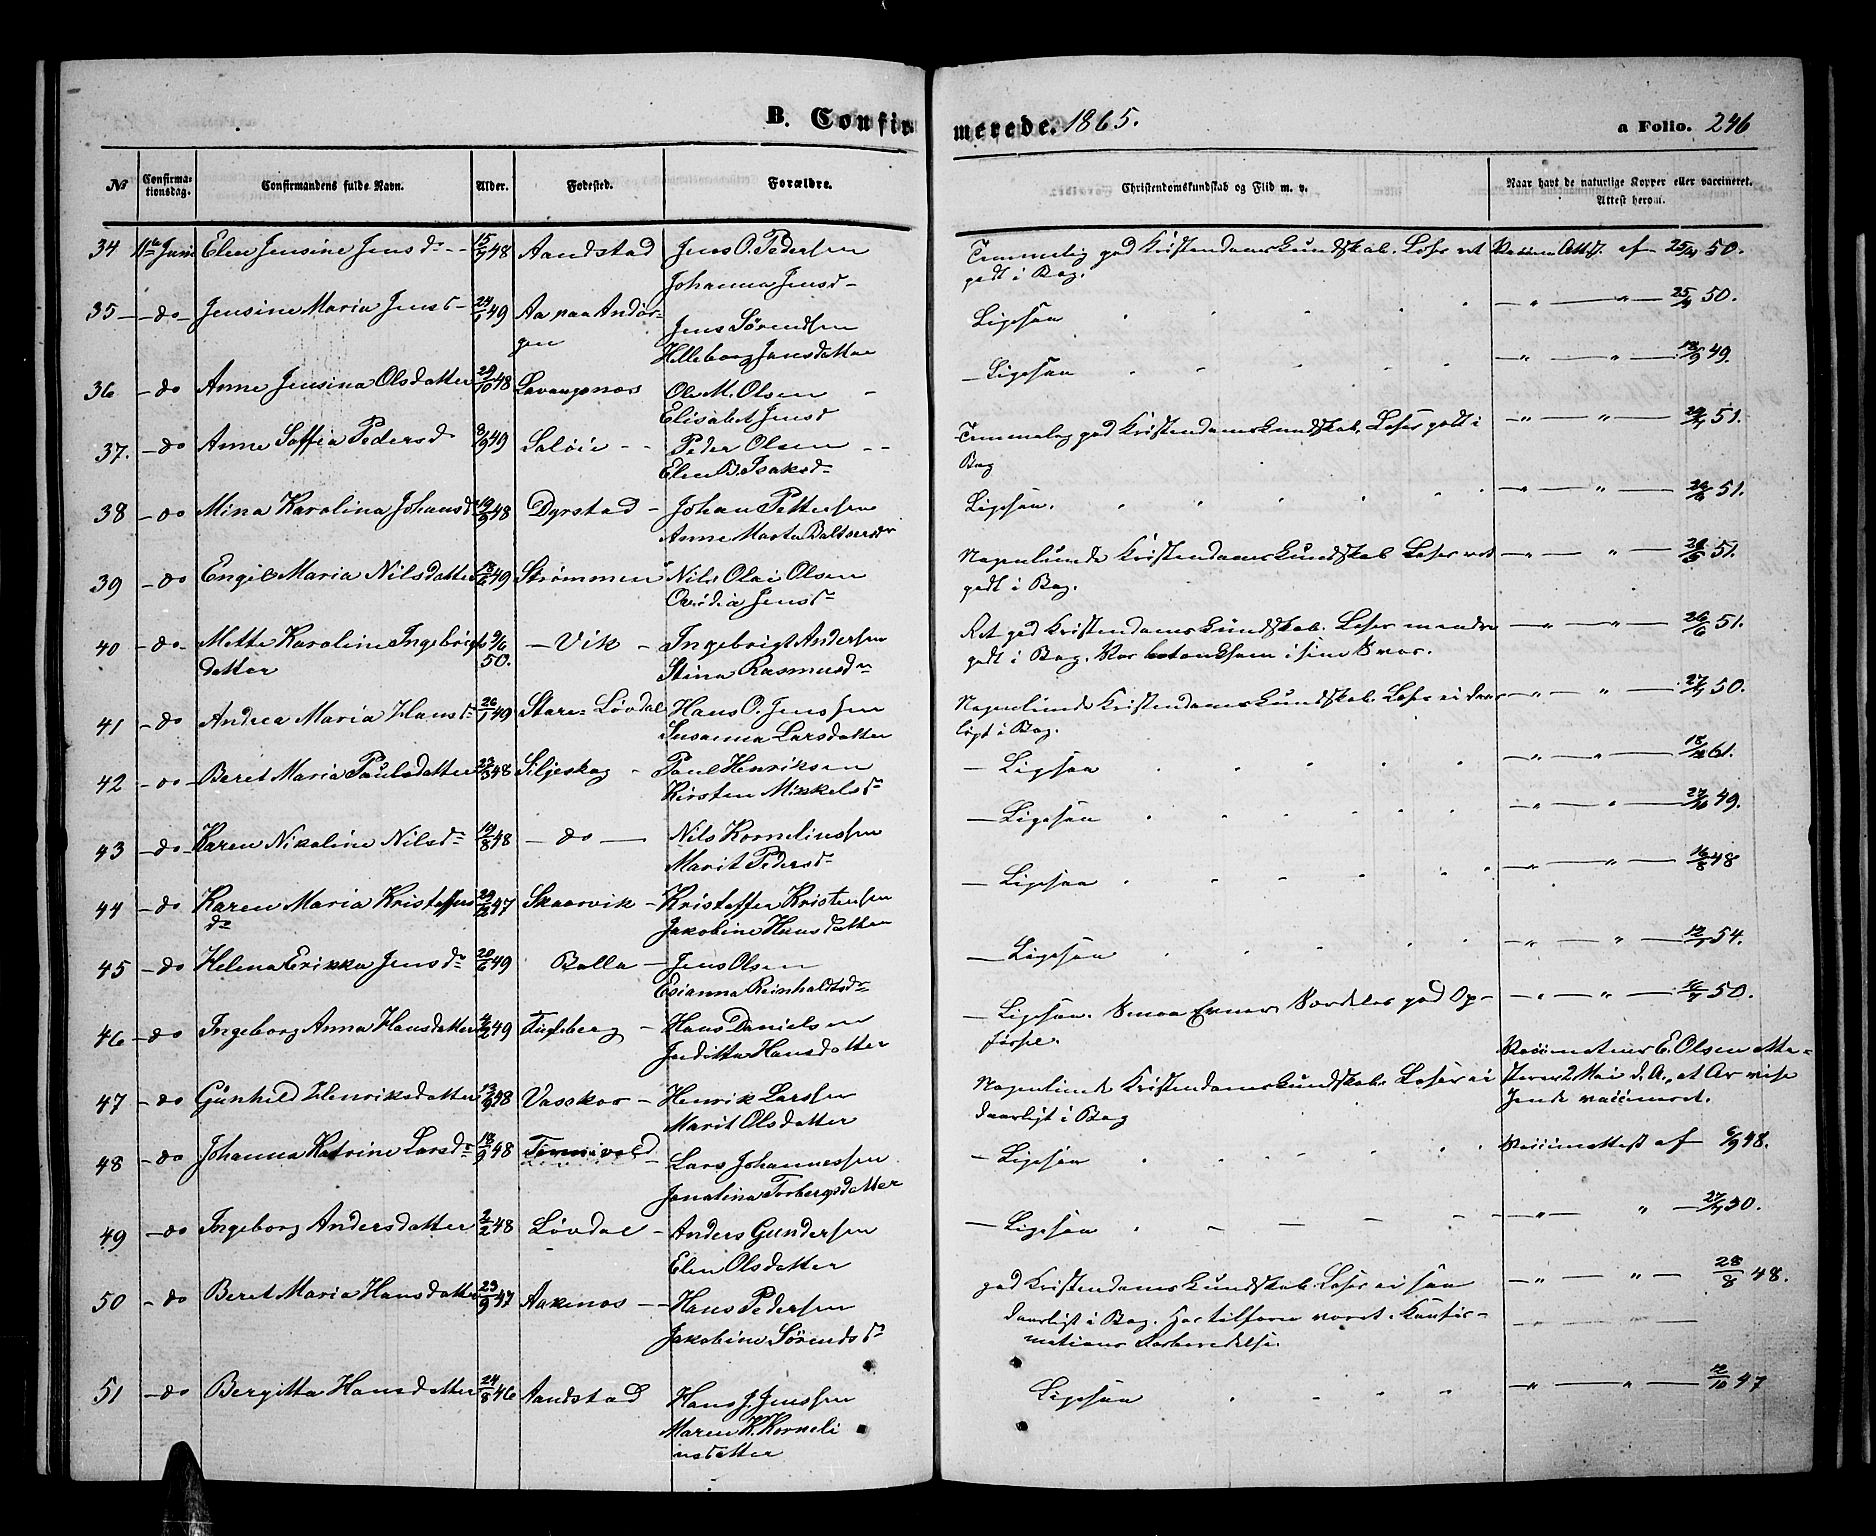 B. Confir-
merede. 1865.
a Folio. 246
No
Confirma-
tionsdag.
Confirmandens fulde Navn.
Alder.
Fødested.
Forældre.
Christendomskundskab og Flid m. v.
Naar havt de naturlige Kopper eller vaccineret.
Attest herom.
34 11te Juni Elen Jensine Jensdr 15/9 48 Aandstad Jens O. Pedersen
Johanna Jensd
Temmelig god Kristendomskundskab. Læser ret
godt i Bog.
af 50.
35 do Jensine Maria Jensd 24/1 49 Aa paa Andør-
gen
Jens Sørendsen
Helleborg Jensdatter
Ligesaa
" " 25/9 50.
36 do Anne Jensina Olsdatter 29/10 48 Lavangsnæs Ole M. Olsen
Elisabet Jensd
Ligesaa
" " 49.
37. do Anne Soffia Pedersd 8/9 49 Saløie Peder Olsen
Elen B. Isaksdr
Temmelig god Kristendomskundskab. Læser godt i
Bog
" " 51.
38 do Mina Karolina Johansd 19/9 48 Dyrstad Johan Pettersen
Anne Marta Baltsersdr
Ligesaa.
" " 51.
39 do Engel Maria Nilsdatter 18/6 49 Strømmen Nils Olai Olsen
Ovidia Jensdr
Nogenlunde Kristendomskundskab Læser ret
godt i Bog.
" " 51.
40 do Mette Karoline Ingebrigts
datter
9/6
50.
Vik Ingebrigt Andersen
Stina Rasmusdr
Ret god Kristendomskundskab. Læser mindre
godt i Bog. Var betænksom i sine Svar.
" " 26/6 51.
41 do Andrea Maria Hansdr 26/1 49 Store-Løvdal Hans O. Jenssen
Susanna Larsdatter
Nogenlunde Kristendomskundskab. Læser ei daar-
ligt i Bog.
" " 50.
42 do Beret Maria Paulsdatter 48 Siljeskog Paul Henriksen
Kirsten Mikkelsdr
Ligesaa
" " 61.
43 do Karen Nikoline Nilsdr 19/8 48 do Nils Korneliussen
Marit Pedersdr
Ligesaa
" " 27/10 49.
44 do Karen Maria Kristoffers
dr
47 Skaarvik Kristoffer Kristensen
Jakobine Hansdatter
Ligesaa
" " 16/8 48
45 do Helena Erikka Jensdr 20/6 49 Bolla Jens Olsen
Esianna Reinholdtsdr
Ligesaa
" " 54.
46 do Ingeborg Anna Hansdatter 49 Fuglberg Hans Danielsen
Juditta Hansdatter
Ligesaa. Smaa Evner. Særdeles god Op-
førsel.
" " 50.
47 do Gunhild Henriksdatter 13/9 48 Vasskar Henrik Larssen
Marit Olsdatter
Nogenlunde Kristendomskundskab. Læser ei
daarligt i Bog
Vaccinatør E. Olsen atte-
sterer 2 Mai d. A., at
vaccineret.
48 do Johanna Katrine Larsdr 18/9 48 Lars Johannessen
Jonatina Torbergsdatter
Ligesaa
Vaccinattest af 6/9 48.
49 do Ingeborg Andersdatter 2/2 48 Løvdal Anders Gundersen
Elen Olsdatter
Ligesaa
" " 50.
50 do Beret Maria Hansdatter 23/9 47 Aakenæs Hans Pedersen
Jakobine Sørendsdr
god Kristendomskundskab. Læser ei saa
daarligt i Bog. Har tilforn været i Konfir-
mations Forberedelse.
" " 28/8 48.
51 do Bergitta Hansdatter 24/8 46 Aandstad Hans J. Jenssen
Maren K. Korneli
usdatter
Ligesaa
" " 12/10 47